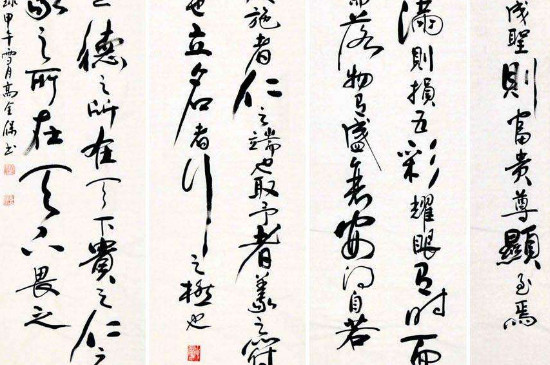 成聖則富貴尊顯至焉
滿則損五彩耀眼有时而
落物有盛衰安得自若
施者仁之端也取予者義之符
也立名者行之極也
德之所在天下貴之仁之
之所在天下畏之
甲午雪月高全保书